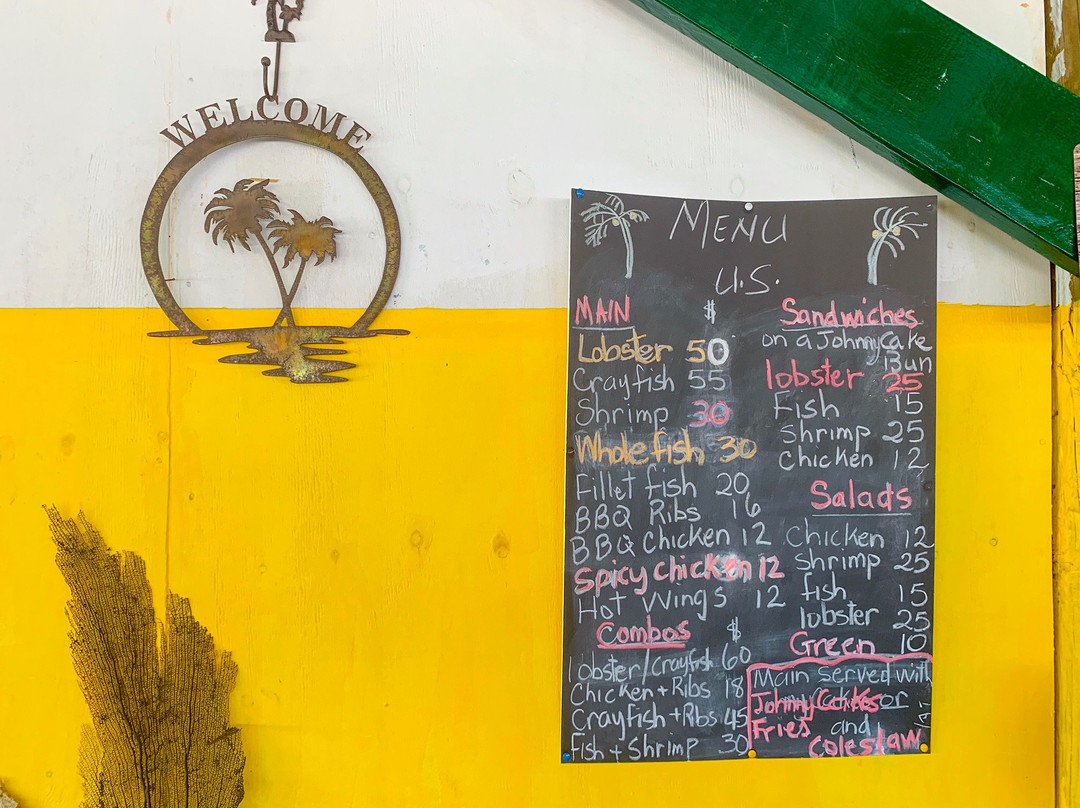 WELCOME
MENU
U.S.
MAIN $
Lobster 50
Crayfish 55
Shrimp 30
Whole fish 30
Fillet fish 20
BBQ Ribs 16
BBQ Chicken 12
Spicy chicken 12
Hot Wings 12
Combos $
lobster/Crayfish 60
Chicken + Ribs 18
Crayfish + Ribs 45
Fish + Shrimp 30
Sandwiches
on a Johnny Cake
Bun
lobster 25
Fish 15
Shrimp 25
Chicken 12
Salads
Chicken 12
Shrimp 25
fish 15
lobster 25
Green 10
Main served with
Johnny Cakes or
Fries and
Coleslaw